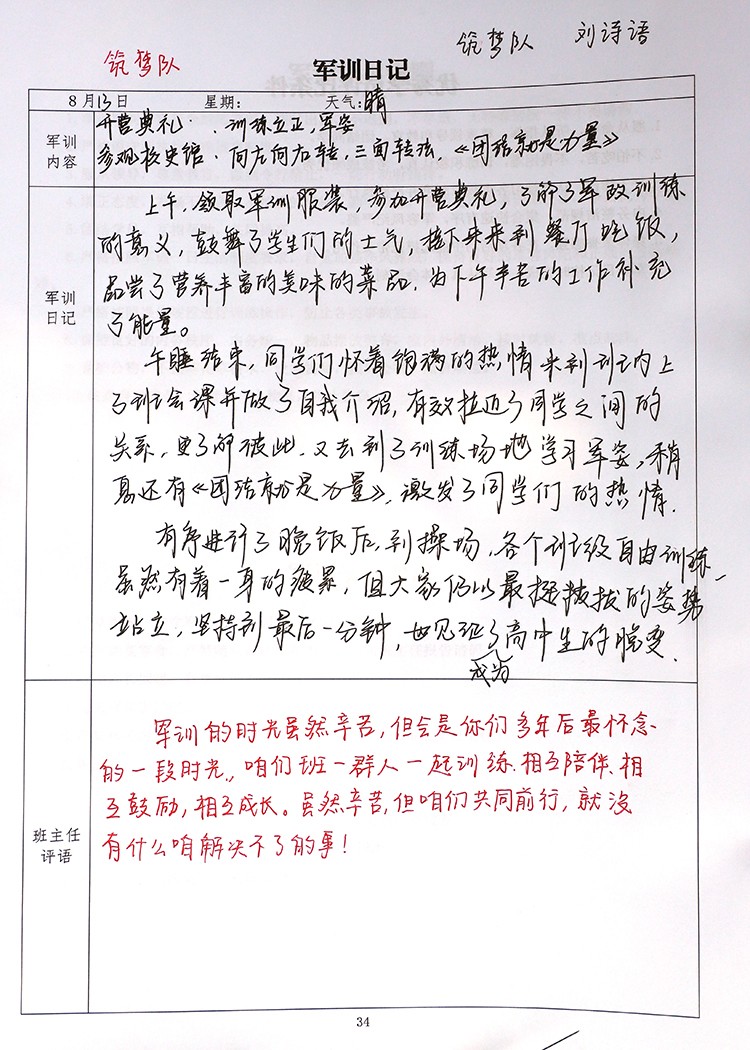 筑梦队 刘诗语
筑梦队
军训日记
8月13日 星期: 天气:晴
军训
内容
开营典礼. 训练立正,军姿
参观校史馆·向左向右转,三面转弦,《团结就是力量》
军训
日记
上午,领取军训服装,参加开营典礼,了解了军政训练
的意义,鼓舞了学生们的士气,接下来来到餐厅吃饭,
品尝了营养丰富的美味的菜品,为下午辛苦的工作补充
了能量。
午睡结束,同学们怀着饱满的热情来到班内上
了班会课并做了自我介绍,有效拉近了同学之间的
关系,更了解彼此,又去到了训练场地学习军姿,稍
息还有《团结就是力量》,激发了同学们的热情.
有序进行了晚饭后,到操场,各个班级自由训练,
虽然有着一身的疲累,但大家仍以最挺拔的姿势
站立,坚持到最后一分钟,也见证了成为高中生的蜕变.
班主任
评语
军训的时光虽然辛苦,但会是你们多年后最怀念
的一段时光,咱们班一群人一起训练.相互陪伴.相
互鼓励,相互成长。虽然辛苦,但咱们共同前行,就没
有什么咱解决不了的事!
34